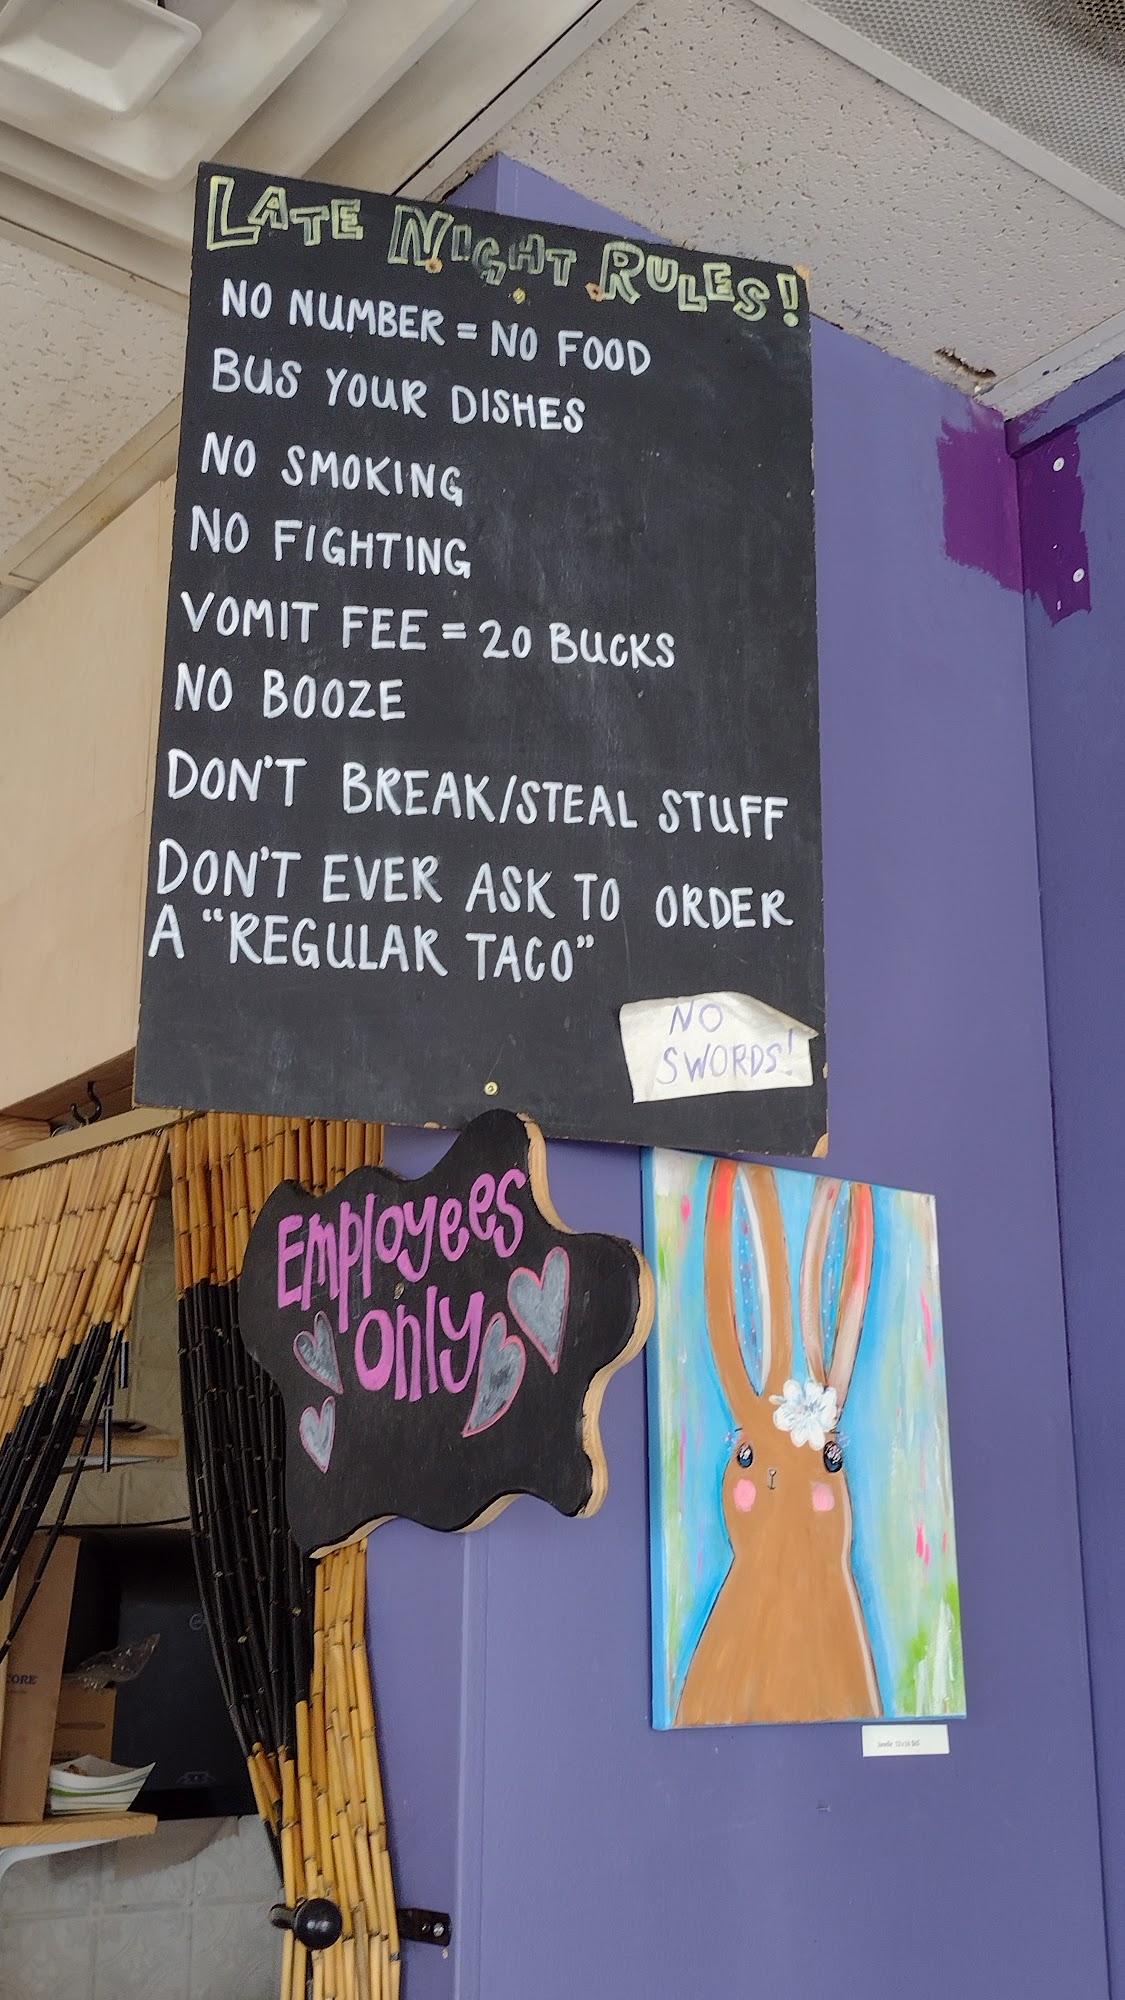 LATE NIGHT RULES!
NO NUMBER = NO FOOD
BUS YOUR DISHES
NO SMOKING
NO FIGHTING
VOMIT FEE = 20 BUCKS
NO BOOZE
DON'T BREAK/STEAL STUFF
DON'T EVER ASK TO ORDER
A “REGULAR TACO”
NO
SWORDS!
Employees
only